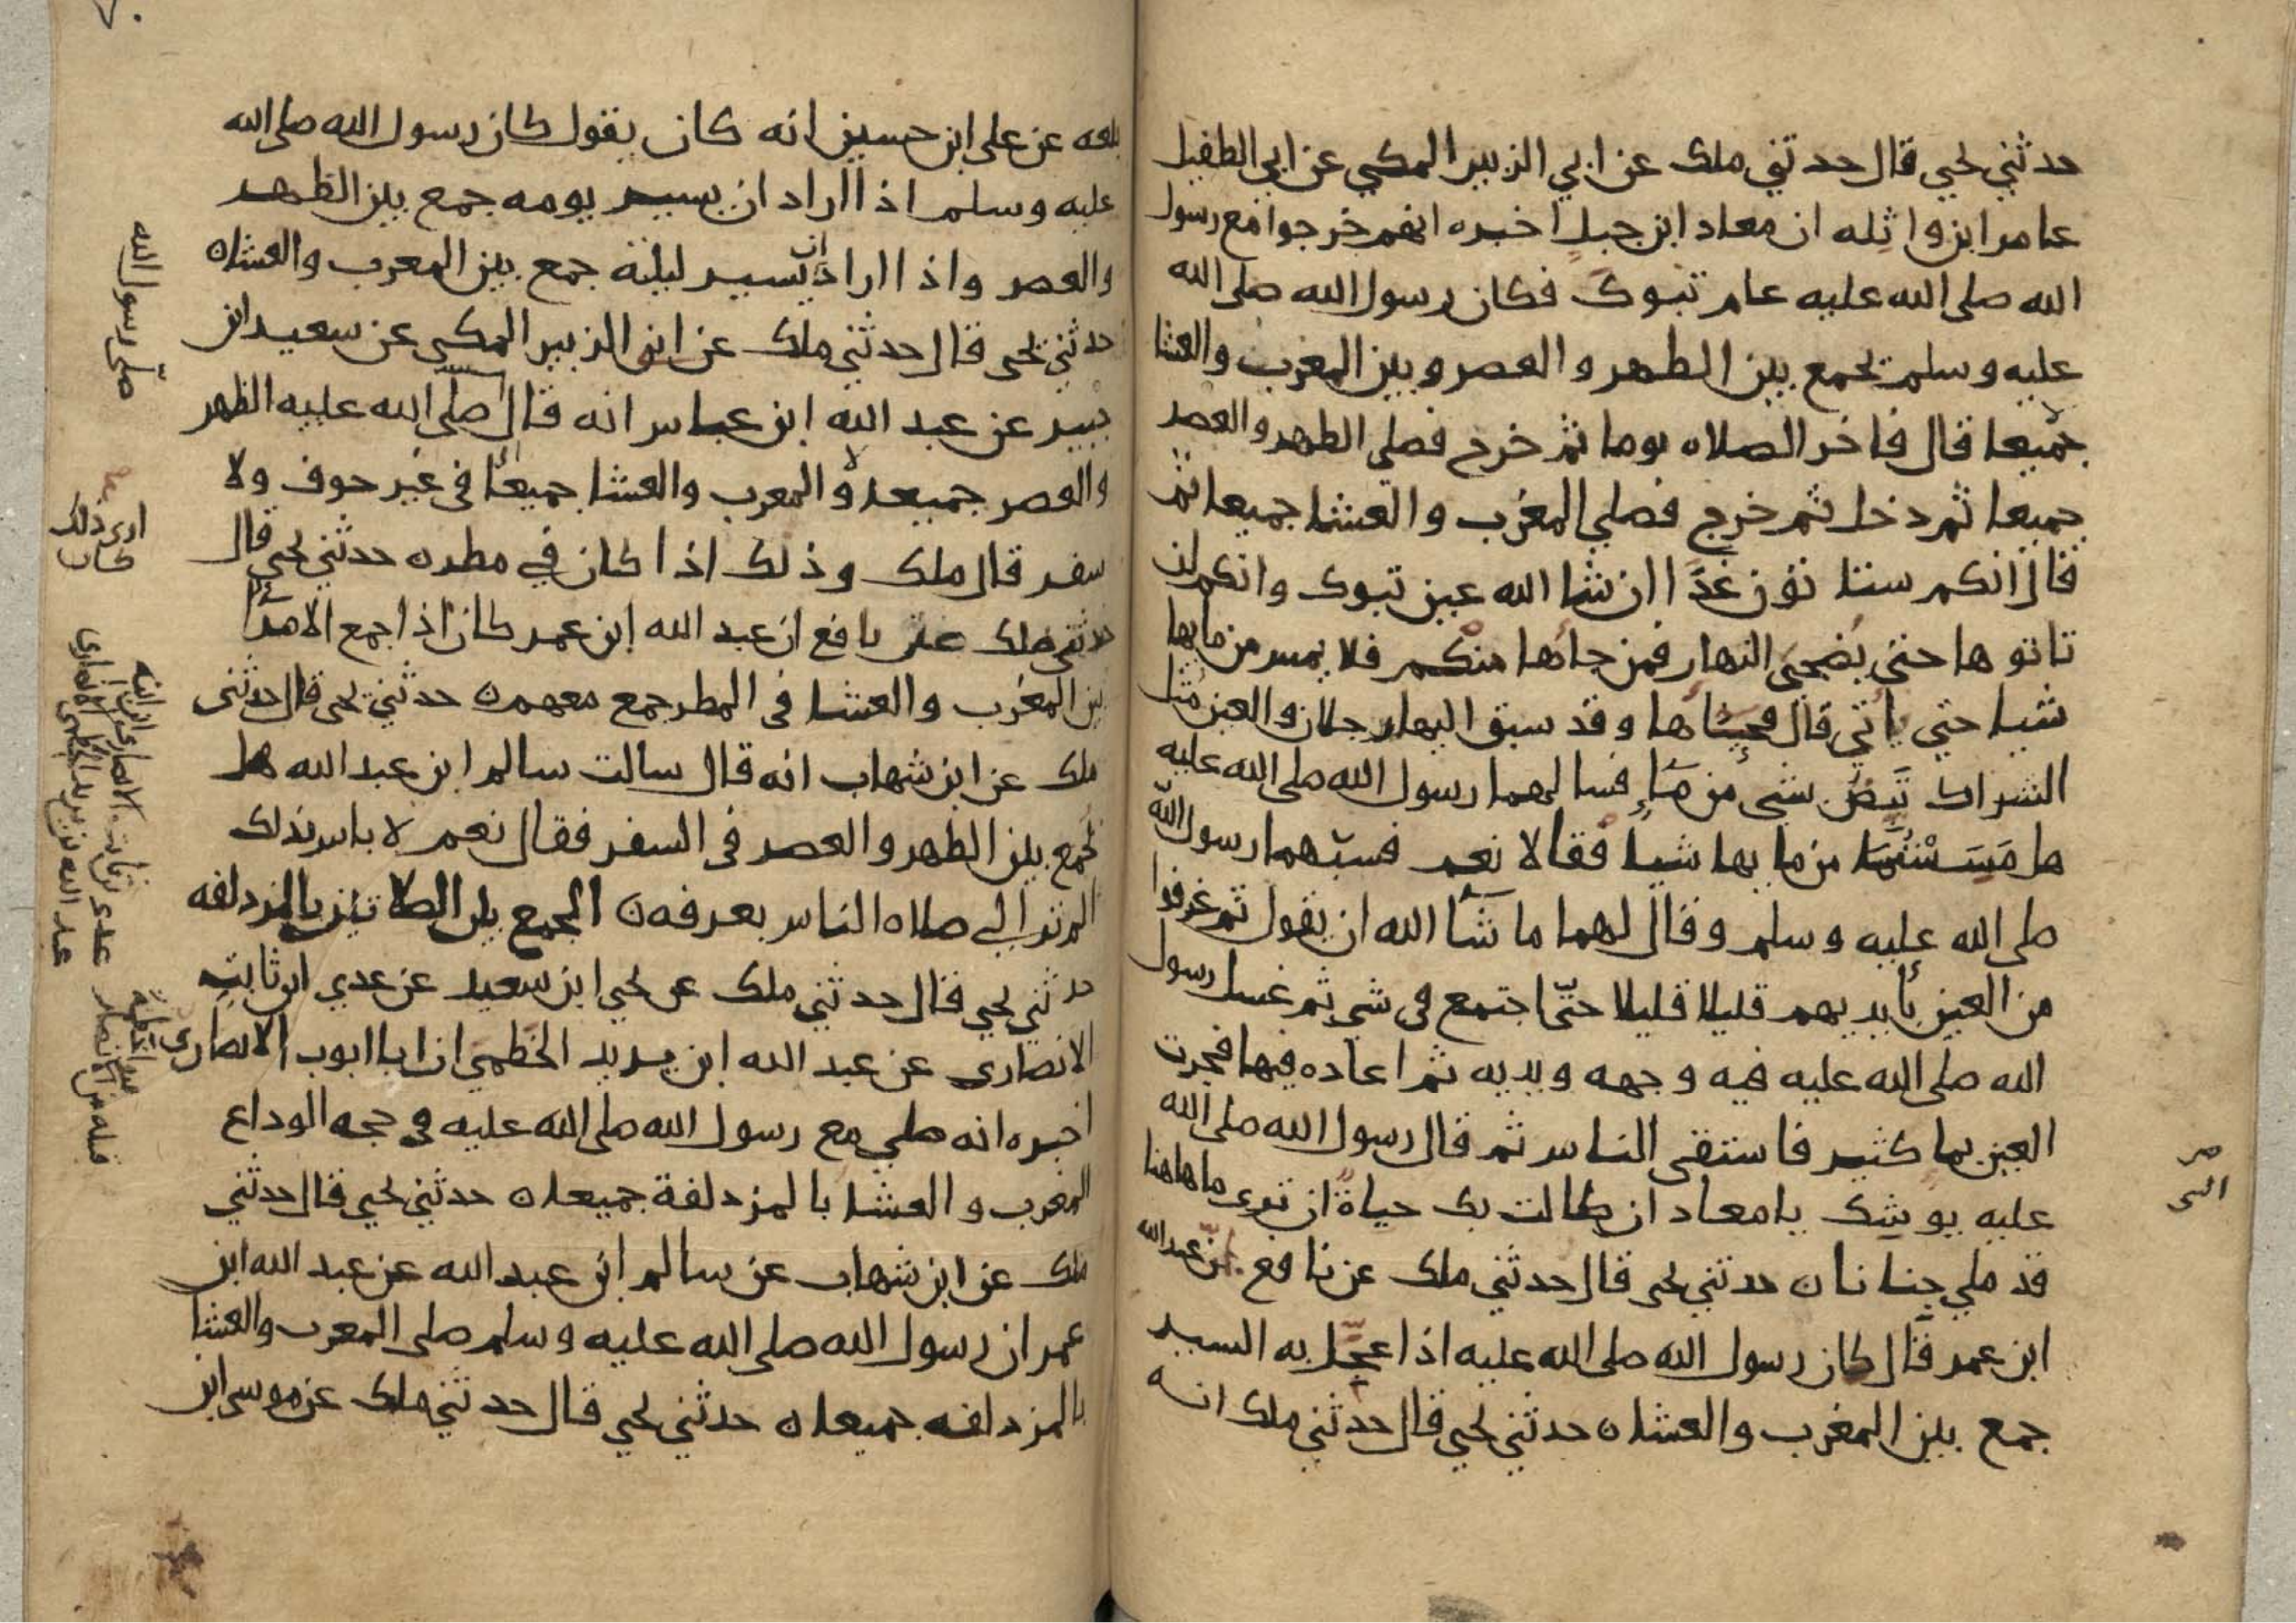 حدثني يحيى قال حدثني ملك عن ابي الزبير المكي عن ابي الطفيل
عامر ابن واثله ان معاد ابن جبل اخبره انهم خرجوا مع رسول
الله صلى الله عليه عام تبوك فكان رسول الله صلى الله
عليه وسلم يجمع بين الظهر والعصر وبين المغرب والعشا
جميعا قال فاخر الصلاه يوما ثم خرج فصلى الظهر والعصر
جميعا ثم دخل ثم خرج فصلى المغرب والعشا جميعا ثم
قال انكم ستاتون غدًا ان شا الله عين تبوك وانكم لن
تاتوها حتى يضحى النهار فمن جاها منكم فلا يمس من مايها
شيا حتى ياتي قال فجيناها وقد سبق اليها رجلان والعين مثل
الشراك تبض بشي من ما فسالهما رسول الله صلى الله عليه
هل مسستما من مايها شيا فقالا نعم فسبهما رسول الله
صلى الله عليه وسلم وقال لهما ما شا الله ان يقول ثم غرفوا
من العين بأيديهم قليلا قليلا حتى اجتمع في شي ثم غسل رسول
الله صلى الله عليه فيه وجهه ويديه ثم اعاده فيها فجرت
العين بما كثير فاستقى الناس ثم قال رسول الله صلى الله
عليه يوشك يا معاد ان طالت بك حياة ان ترى ما هاهنا
قد ملي جنانا ن حدثني يحيى قال حدثني ملك عن نافع عن عبد الله
ابن عمر قال كان رسول الله صلى الله عليه اذا عجل به السير
جمع بين المغرب والعشا ن حدثني يحيى قال حدثني ملك انه
بلغه عن علي ابن حسين انه كان يقول كان رسول الله صلى الله
عليه وسلم اذا اراد ان يسير يومه جمع بين الظهر
والعصر واذا اراد ان يسير ليلته جمع بين المغرب والعشا ن
حدثني يحيى قال حدثني ملك عن ابي الزبير المكي عن سعيد ابن
جبير عن عبد الله ابن عباس انه قال صلى الله عليه الظهر
والعصر جميعا والمغرب والعشا جميعا في غير خوف ولا
سفر قال ملك وذلك اذا كان في مطر ن حدثني يحيى قال
حدثني ملك عن نافع ان عبد الله ابن عمر كان اذا جمع الامرا
بين المغرب والعشا في المطر جمع معهم ن حدثني يحيى قال حدثني
ملك عن ابن شهاب انه قال سالت سالم ابن عبد الله هل
يجمع بين الظهر والعصر في السفر فقال نعم لا باس بذلك
الم تر الى صلاه الناس بعرفه ن الجمع بين الصلاتين بالمزدلفه
حدثني يحيى قال حدثني ملك عن يحيى ابن سعيد عن عدي ابن ثابت
الانصاري عن عبد الله ابن يزيد الخطمي ان ابا ايوب الانصاري
اخبره انه صلى مع رسول الله صلى الله عليه في حجه الوداع
المغرب والعشا بالمزدلفة جميعا ن حدثني يحيى قال حدثني
ملك عن ابن شهاب عن سالم ابن عبد الله عن عبد الله ابن
عمر ان رسول الله صلى الله عليه وسلم صلى المغرب والعشا
بالمزدلفه جميعا ن حدثني يحيى قال حدثني ملك عن موسى ابن
صلى رسول الله
ارى ذلك
كان